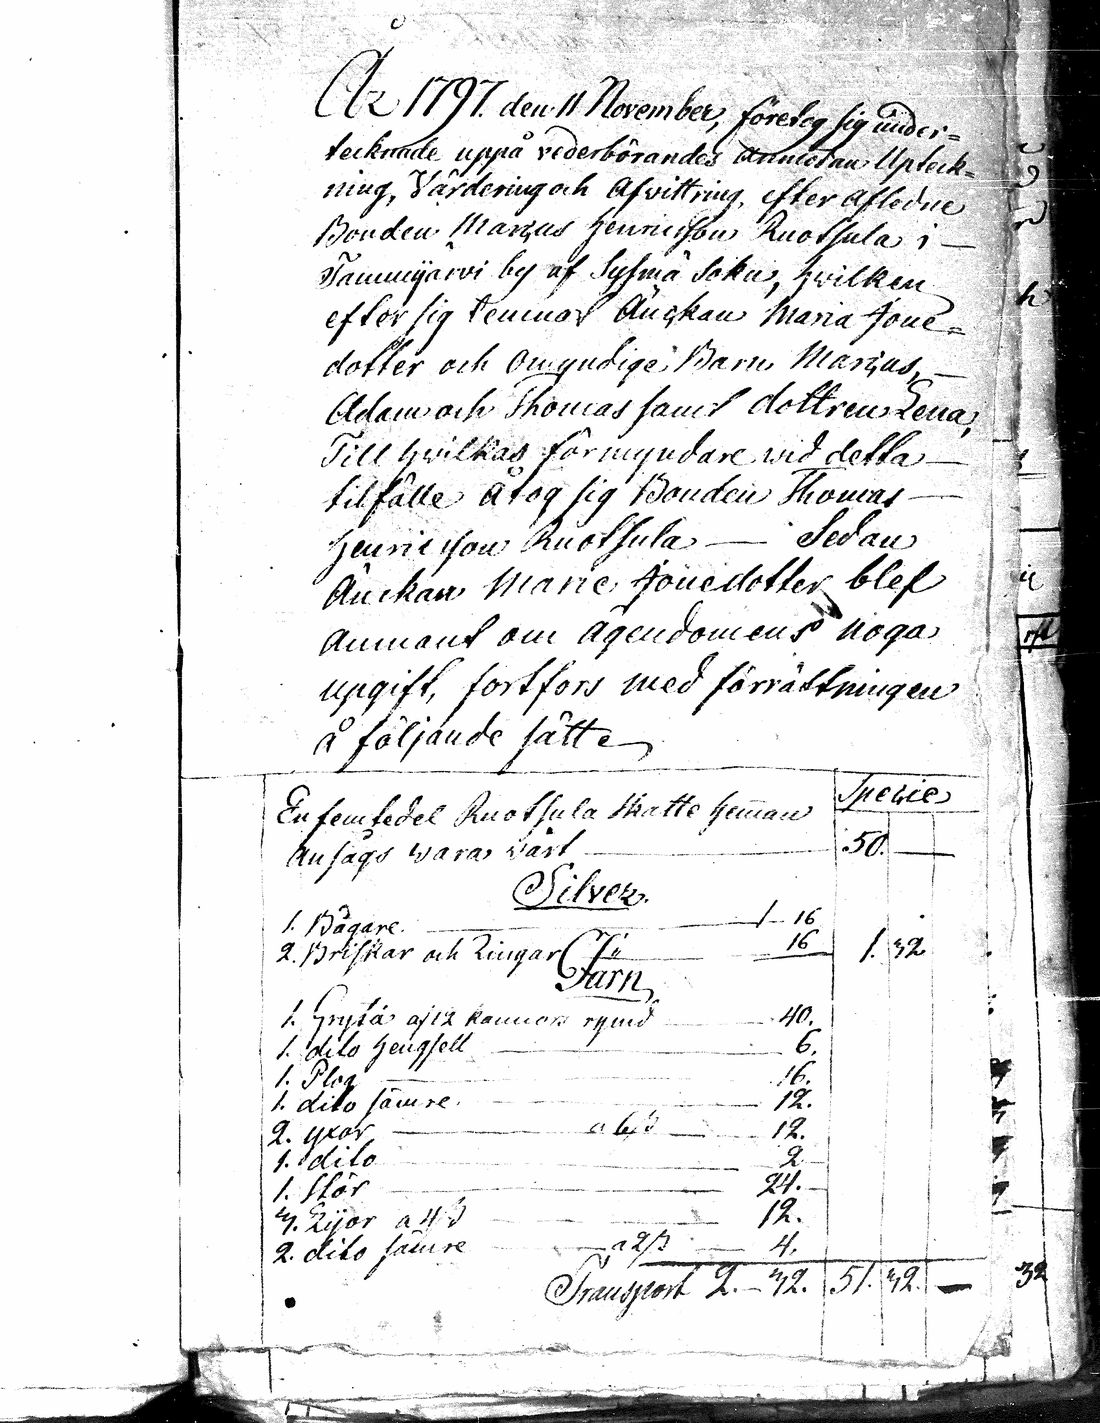 År 1797. den 11 November, företog sig under=
tecknade uppå vederbörandes anmodan Upteck=
ning, Värdering och Afvittring, efter afledne
Bonden Marcus Henricsson Ruotsula i —
Tammijärvi by af Sysmä Sokn, hvilken
efter sig lemnat Änckan Maria Jone=
dotter och omyndige Barn Marcus, —
Adam och Thomas samt dottren Lena,
Till hvilkas förmyndare wid detta —
tilfälle åtog sig Bonden Thomas —
Henricsson Ruotsula — Sedan
Änckan Marie Jonedotter blef
anmant om ägendomens noga
upgift, fortfors med förrättningen
å följande sätt
Specie
En femtedel Ruotsula Skatte Heman
ansågs wara värt — 50. —
Silver.
1. Bägare. — 1 - 16
2. Briskar och Ringar — 16 1. 32
Järn
1. Gryta af 12 kannors rymd — 40.
1. dito — 6.
1. Plog — 16.
1. dito sämre. — 12.
2. yxor — a 6/3 — 12.
1. dito — 2
1. Stör — 24.
3. Lijor a 4/3 — 12.
2. dito sämre — a 2/3 — 4.
Transport 2. - 32. 51. 32. —